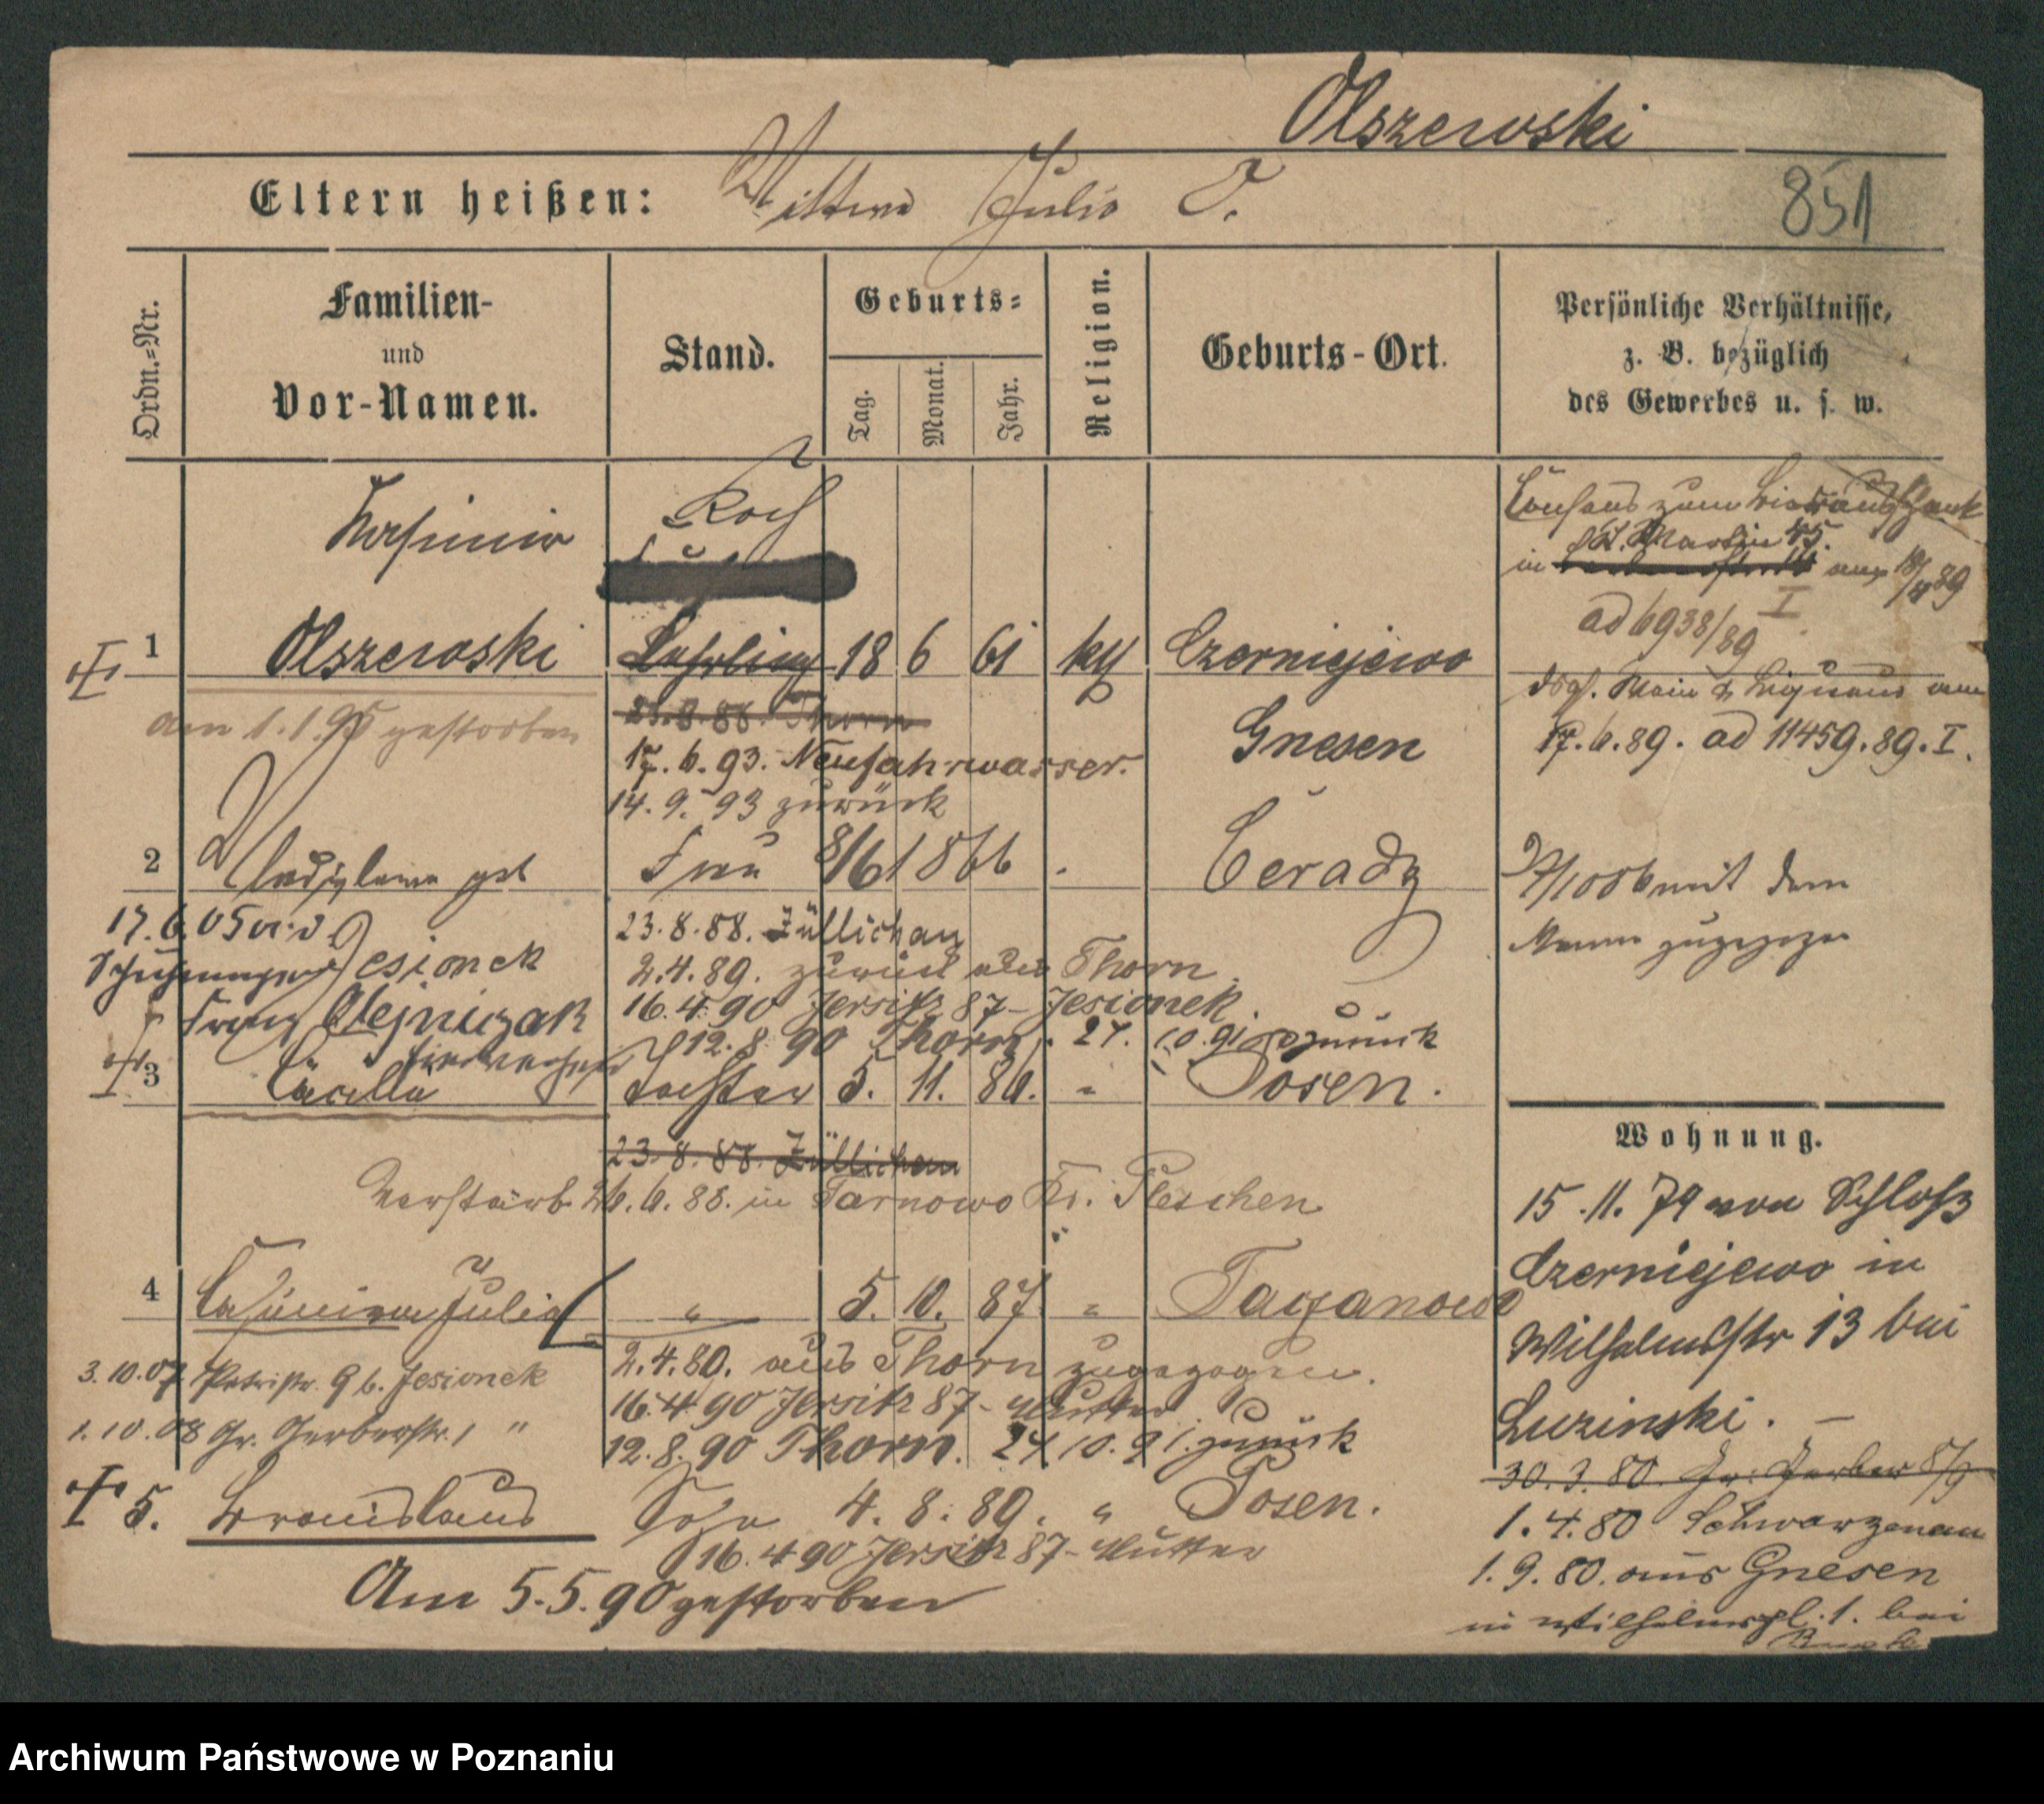 Olszewski
Eltern heißen: Julie O.
851
Ordn.-Nr.
Familien-
und
Vor-Namen.
Stand.
Geburts-
Tag.
Monat.
Jahr.
Religion.
Geburts-Ort.
Persönliche Verhältnisse,
z. B. bezüglich
des Gewerbes u. s. w.
Kasimir
Koch
Consens zum
St. Martin 45.
in
ad 6938/89 I
1 Olszewski Lehrling 18 6 61 kth Czerniejewo
am 1.1.95 gestorben
23.8.88. Thorn
Gnesen
17.6.89. ad 11459.89.I.
17.6.93. Neufahrwasser.
14.9.93 zurück
2 geb Frau 8/6 1866 Ceradz
mit dem
Manne zugezogen
17.6.05
Jesionek
23.8.88. Züllichau
2.4.89. zurück aus Thorn
Franz Olejniczak
16.4.90 Jersitz 87- Jesionek
12.8.90 Thorn. 27.10.91 zurück
3 Cäcilia Tochter 5. 11. 80. " Posen.
23.8.88. Züllichau
verstarb 26.6.88. in Tarnowo Kr. Pleschen
Wohnung.
15.11.79 von Schloß
Czerniejewo in
Wilhelmstr 13 bei
Luzinski. –
4 Julia " 5. 10. 87. "
2.4.89. aus Thorn zugezogen.
3.10.07 Petristr. 9 b. Jesionek
16.4.90 Jersitz 87- Mutter
1.10.08 Gr. Gerberstr. 1 "
12.8.90 Thorn. 27.10.91. zurück
30.3.80. Gr. Gerber 8/9
5. Bronislaus Sohn 4. 8. 89. " Posen.
16.4.90 Jersitz 87- Mutter
Am 5.5.90 gestorben
1.4.80 Schwarzenau
1.9.80. aus Gnesen
in Wilhelmspl. 1. bei
Archiwum Państwowe w Poznaniu